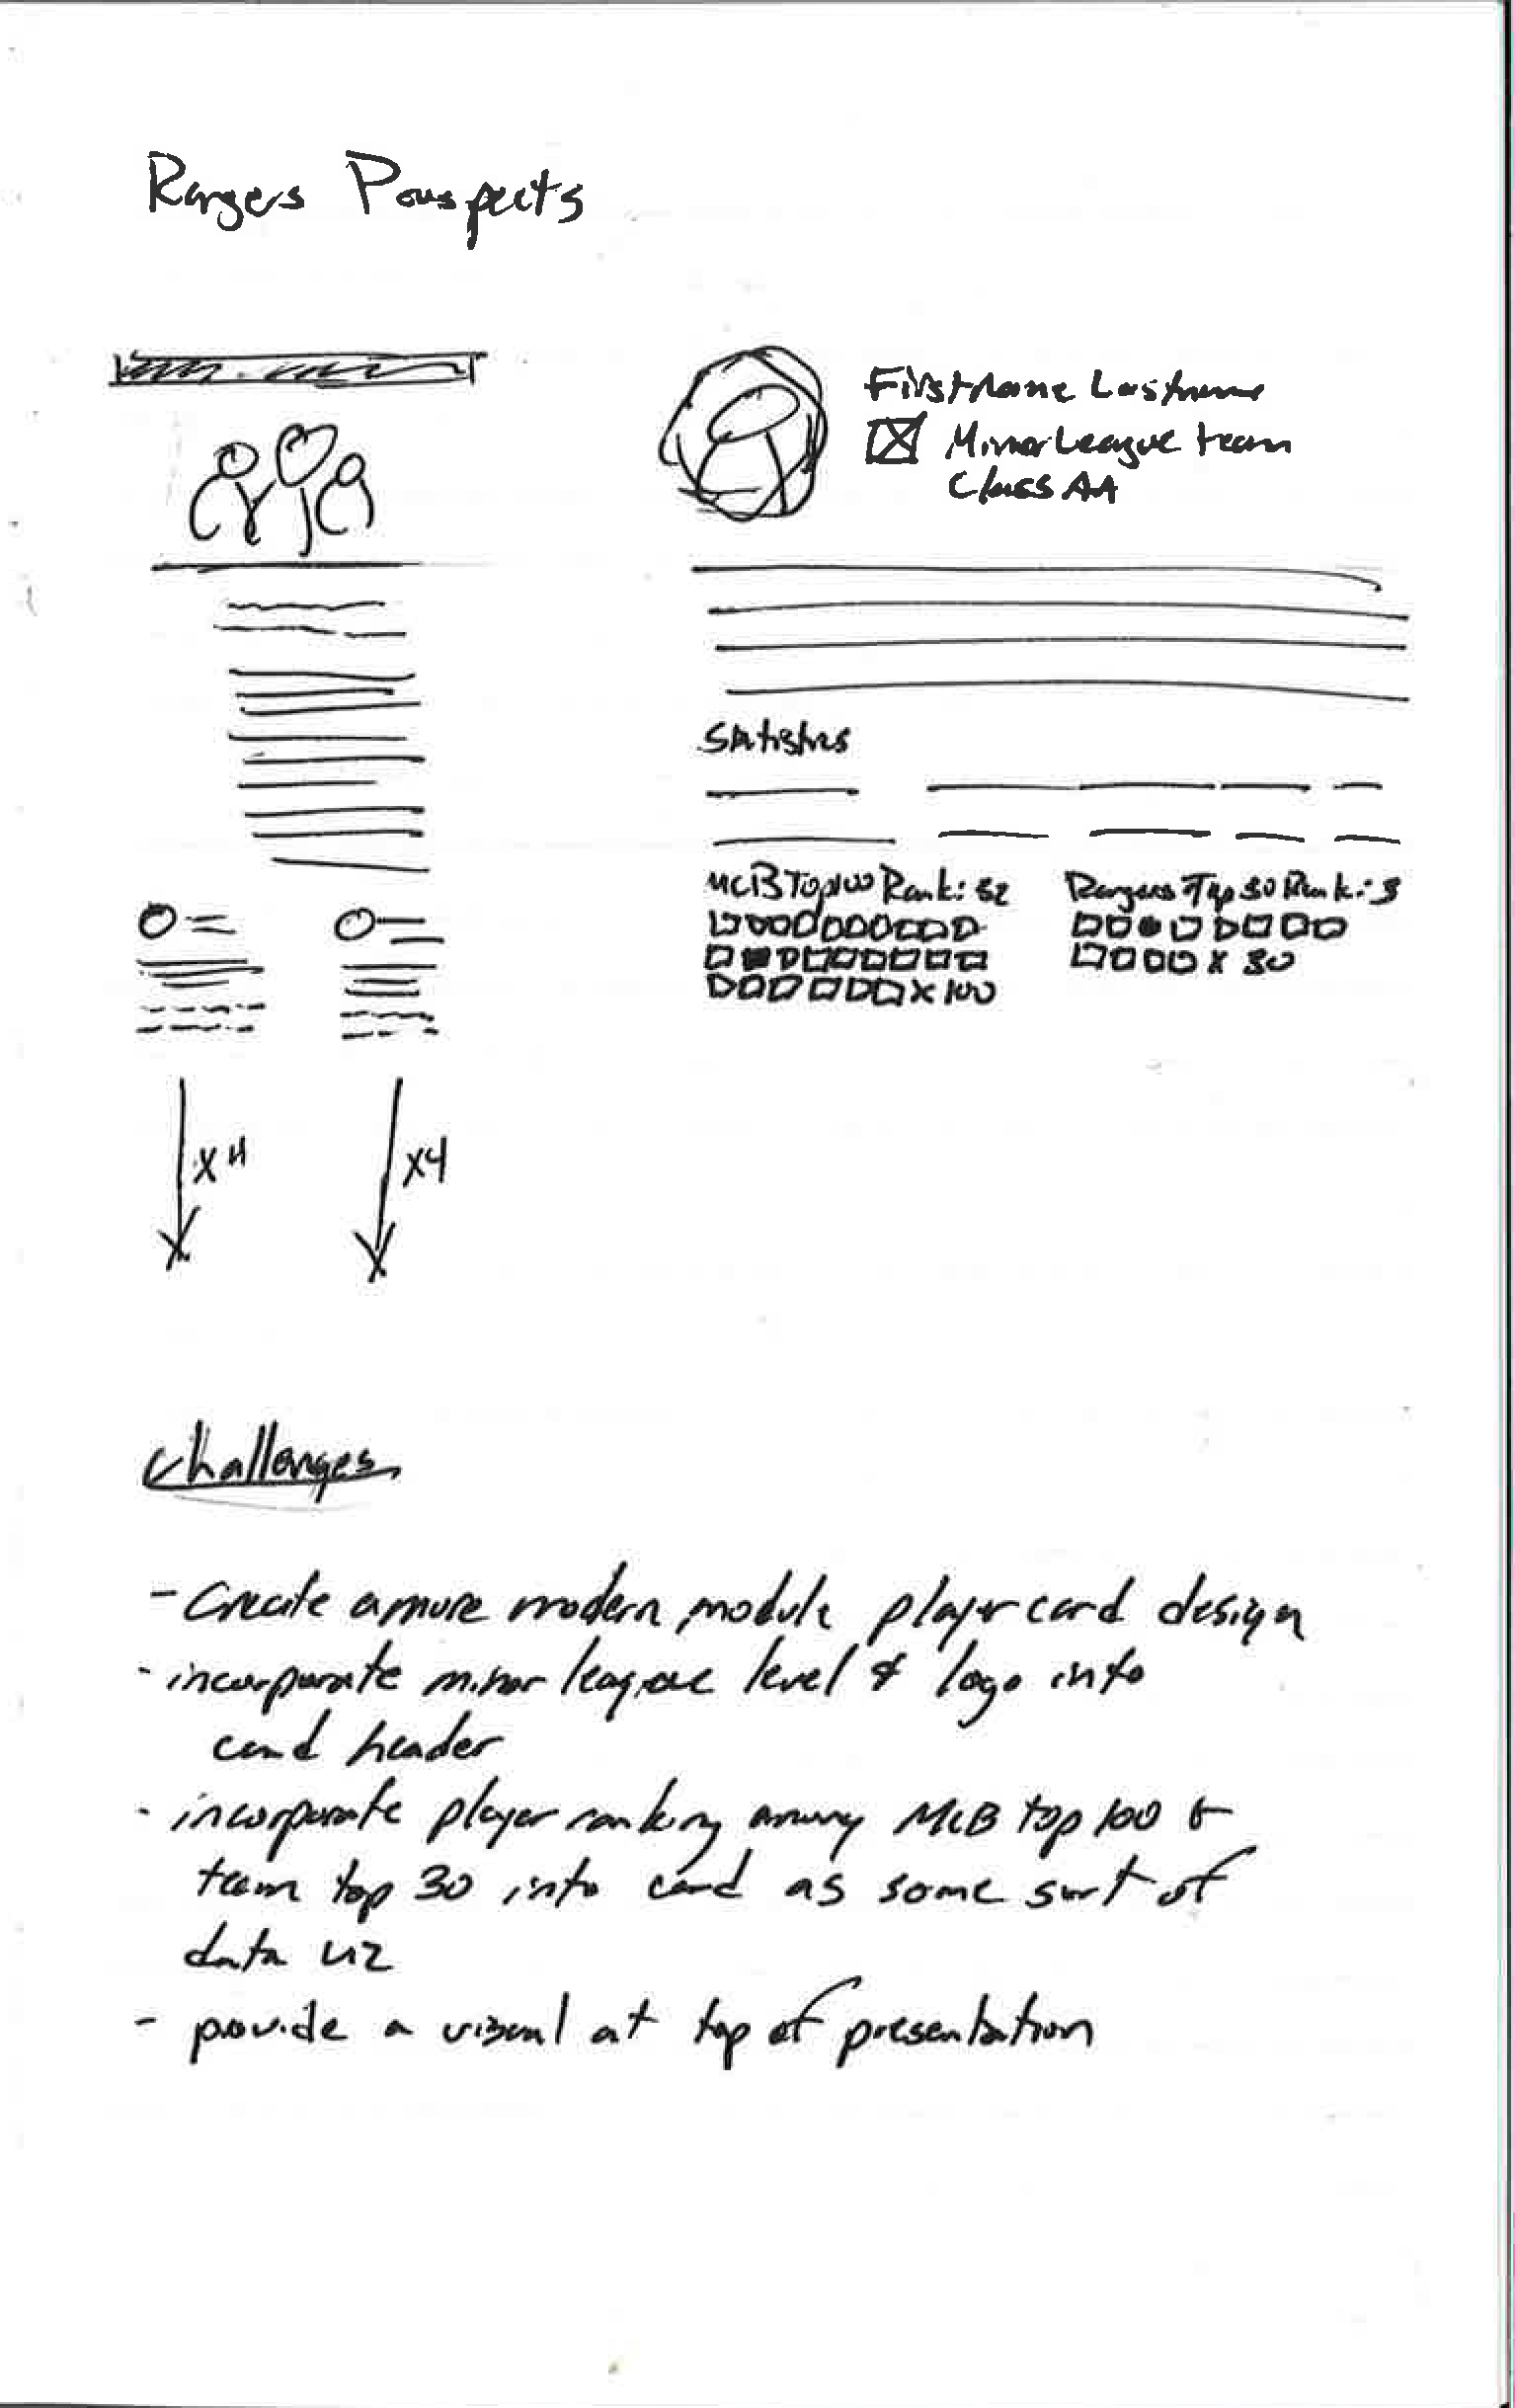 Rangers Prospects
Firstname Lastname
Minor League team
Class AA
Statistics
MLB Top 100 Rank: 52
x 100
Rangers Top 30 Rank: 3
x 30
x4
x4
Challenges
- Create a more modern module player card design
- incorporate minor league level & logo into
card header
- incorporate player ranking among MLB top 100 &
team top 30 into card as some sort of
data viz
- provide a visual at top of presentation